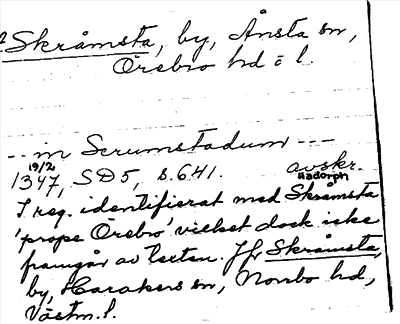 Skråmsta, by, Ånsta sn,
Örebro hd o l.
-- in Scrumstadum ---
19/2
1347, SD5, s. 641. avskr.
Hadorph
I reg. identifierat med Skråmsta
'prope Örebro' vilket dock icke
framgår av texten. Jfr Skråmsta,
by, Harakers sn, Norrbo hd,
Västm. l.